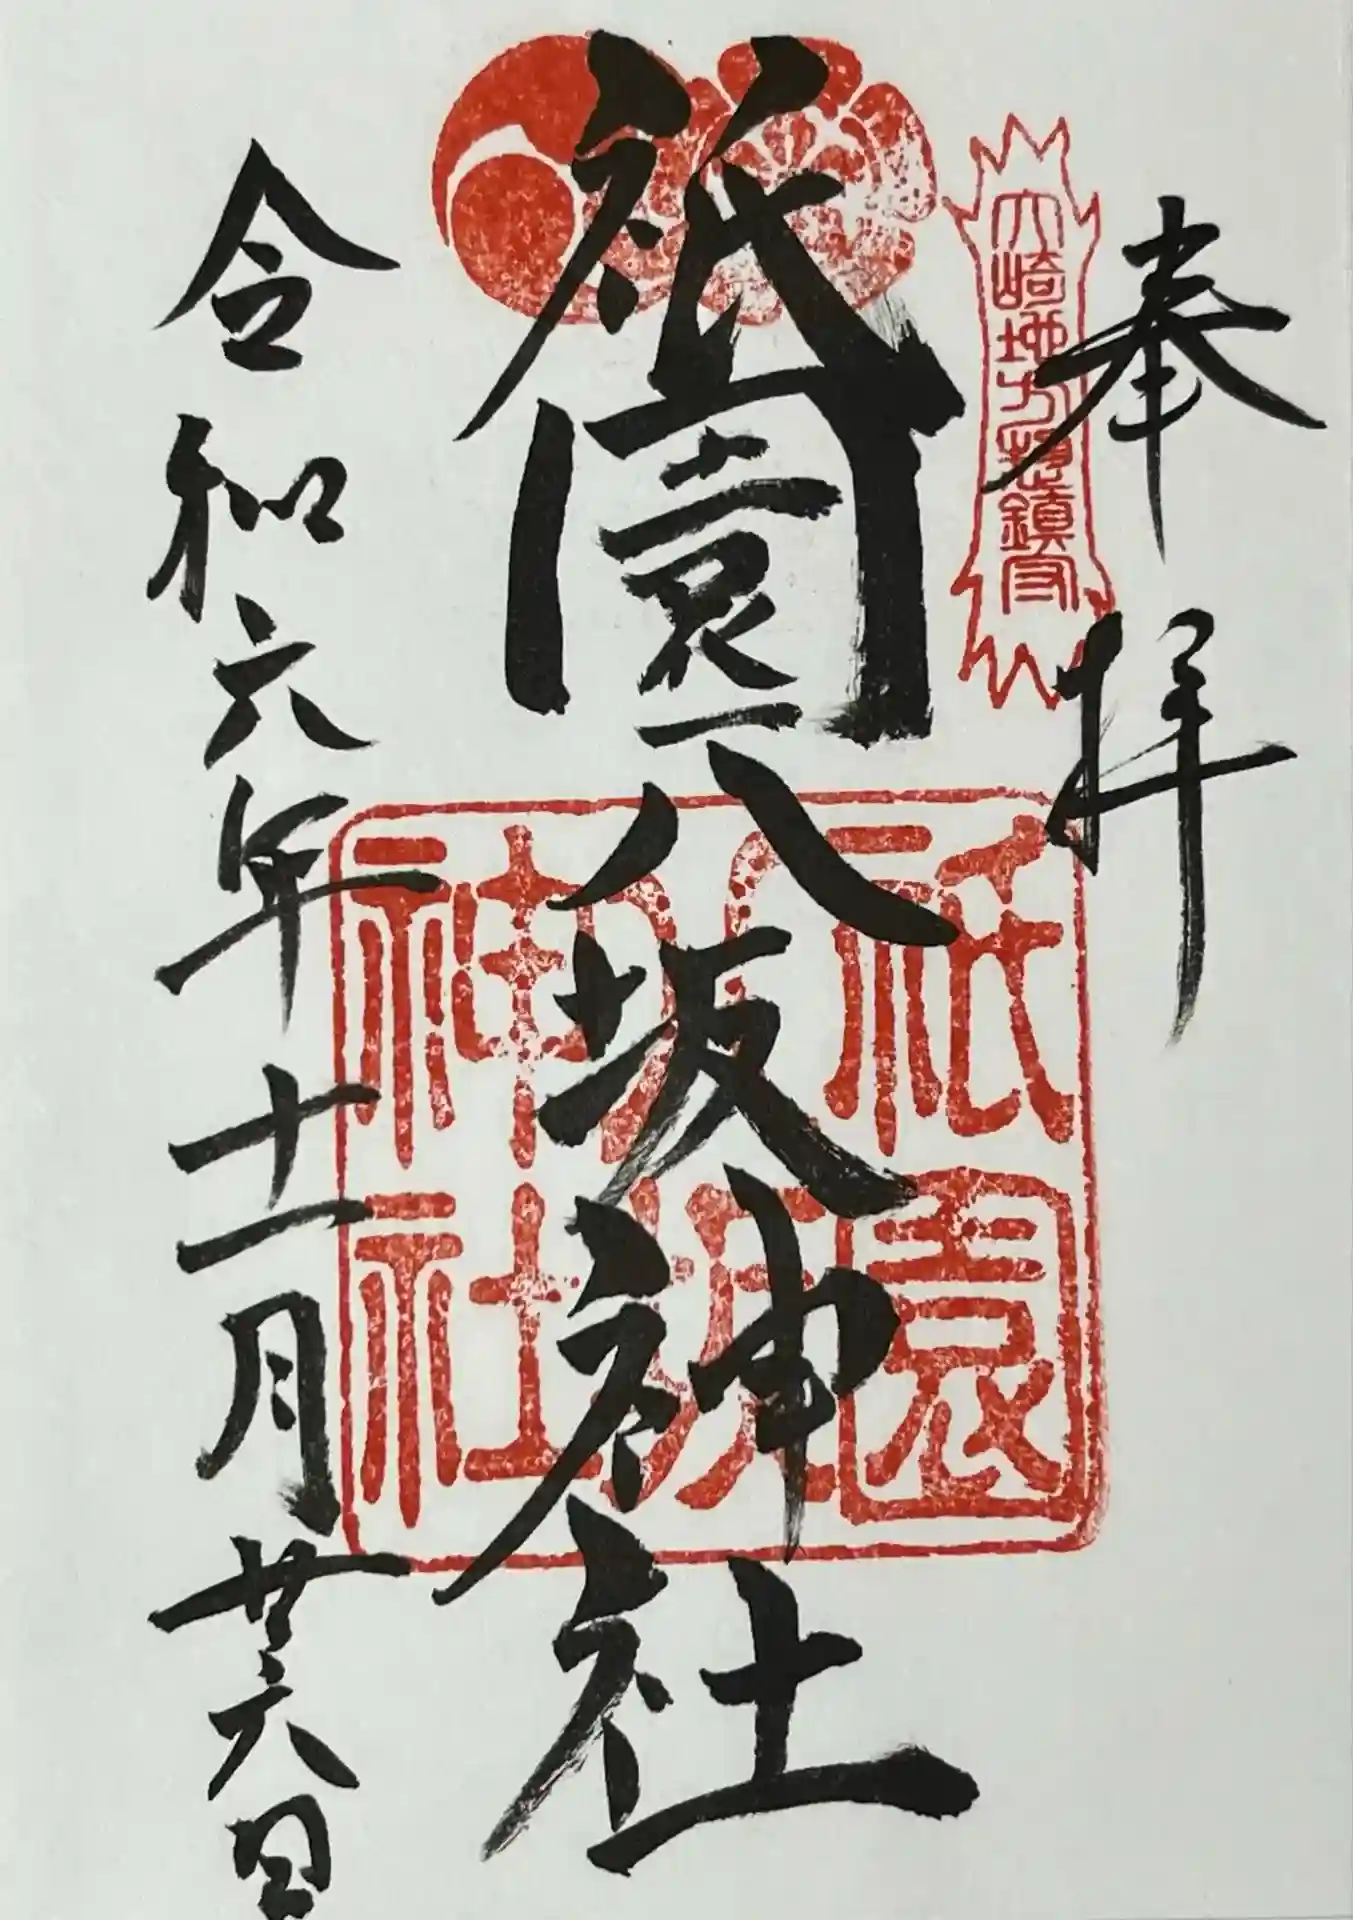 奉拝
大崎地方総鎮守
祇園八坂神社
祇園
八坂
神社
令和六年十一月廿六日